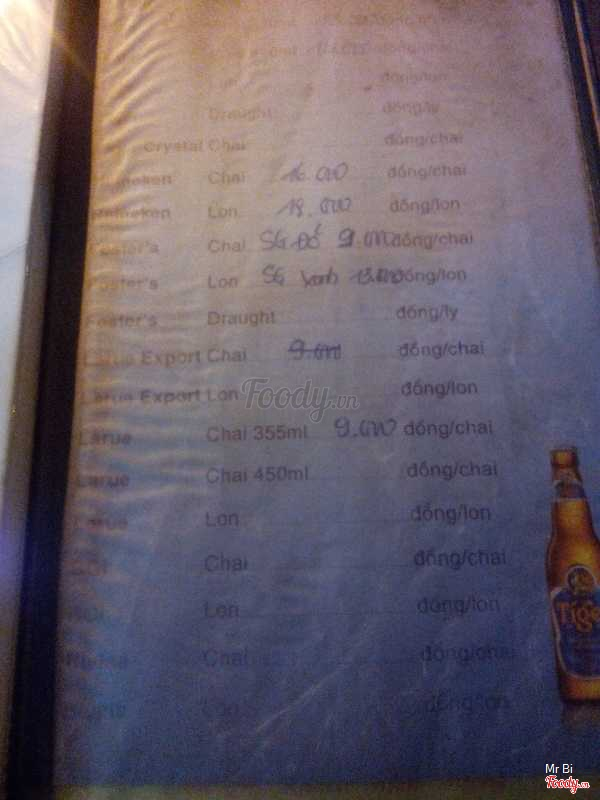 Lon đồng/lon
Draught đồng/ly
Crystal Chai đồng/chai
Heineken Chai 16.000 đồng/chai
Heineken Lon 18.000 đồng/lon
Foster's Chai SG Đỏ 9.000 đồng/chai
Foster's Lon SG Xanh 13.000 đồng/lon
Foster's Draught đồng/ly
Larue Export Chai 9.000 đồng/chai
Larue Export Lon đồng/lon
Foody.vn
Larue Chai 355ml 9.000 đồng/chai
Larue Chai 450ml đồng/chai
Larue Lon đồng/lon
Chai đồng/chai
Lon đồng/lon
Tiger
Chai đồng/chai
Lon đồng/lon
Mr Bi
Foody.vn